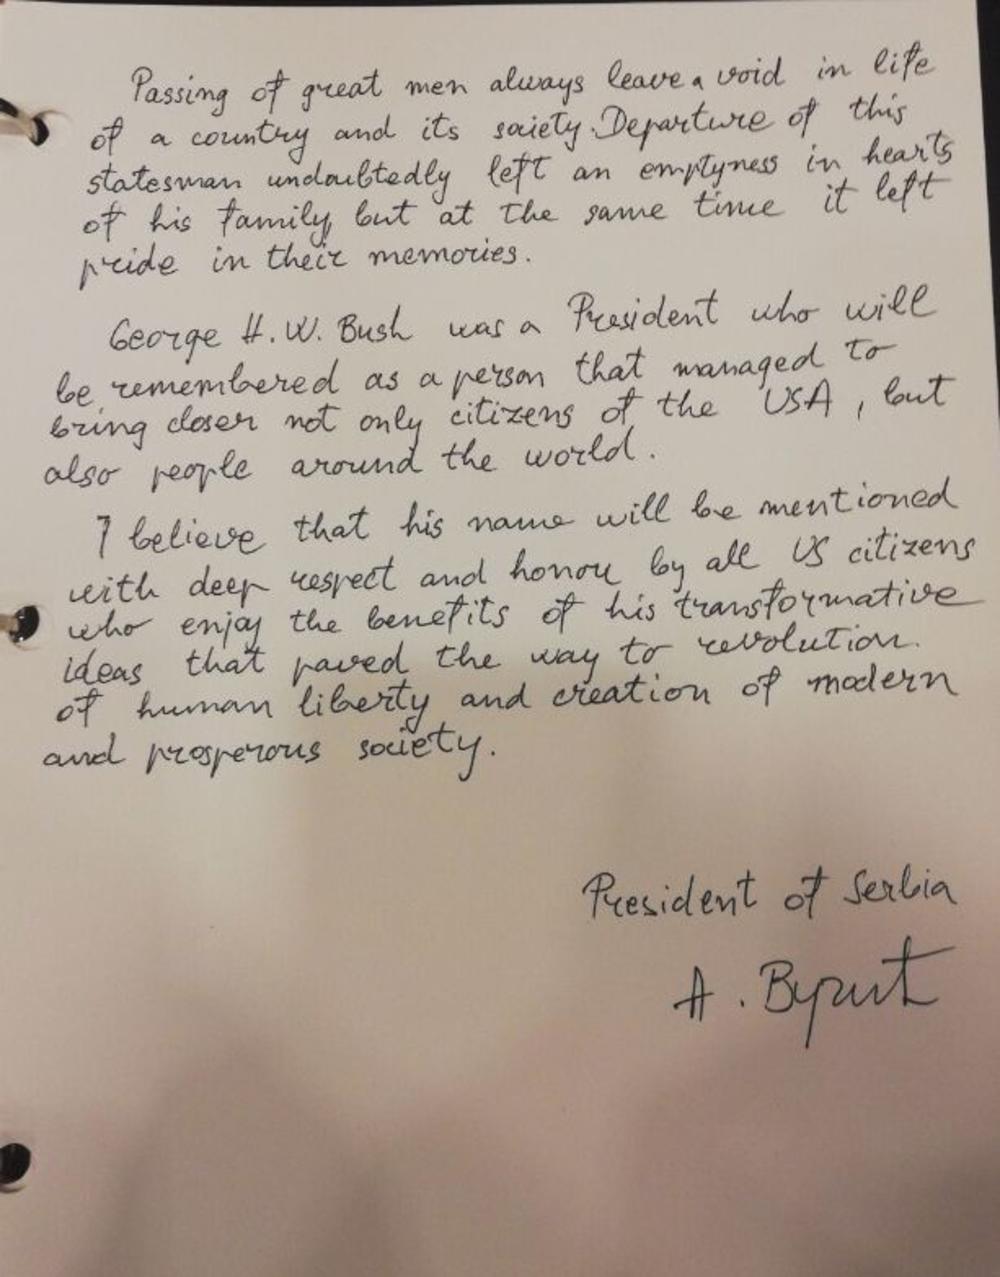 Passing of great men always leave a void in life
of a country and its society. Departure of this
statesman undoubtedly left an emptyness in hearts
of his family, but at the same time it left
pride in their memories.
George H. W. Bush was a President who will
be remembered as a person that managed to
bring closer not only citizens of the USA, but
also people around the world.
I believe that his name will be mentioned
with deep respect and honour by all US citizens
who enjoy the benefits of his transformative
ideas that paved the way to revolution.
of human liberty and creation of modern
and prosperous society.
President of Serbia
А. Вучић